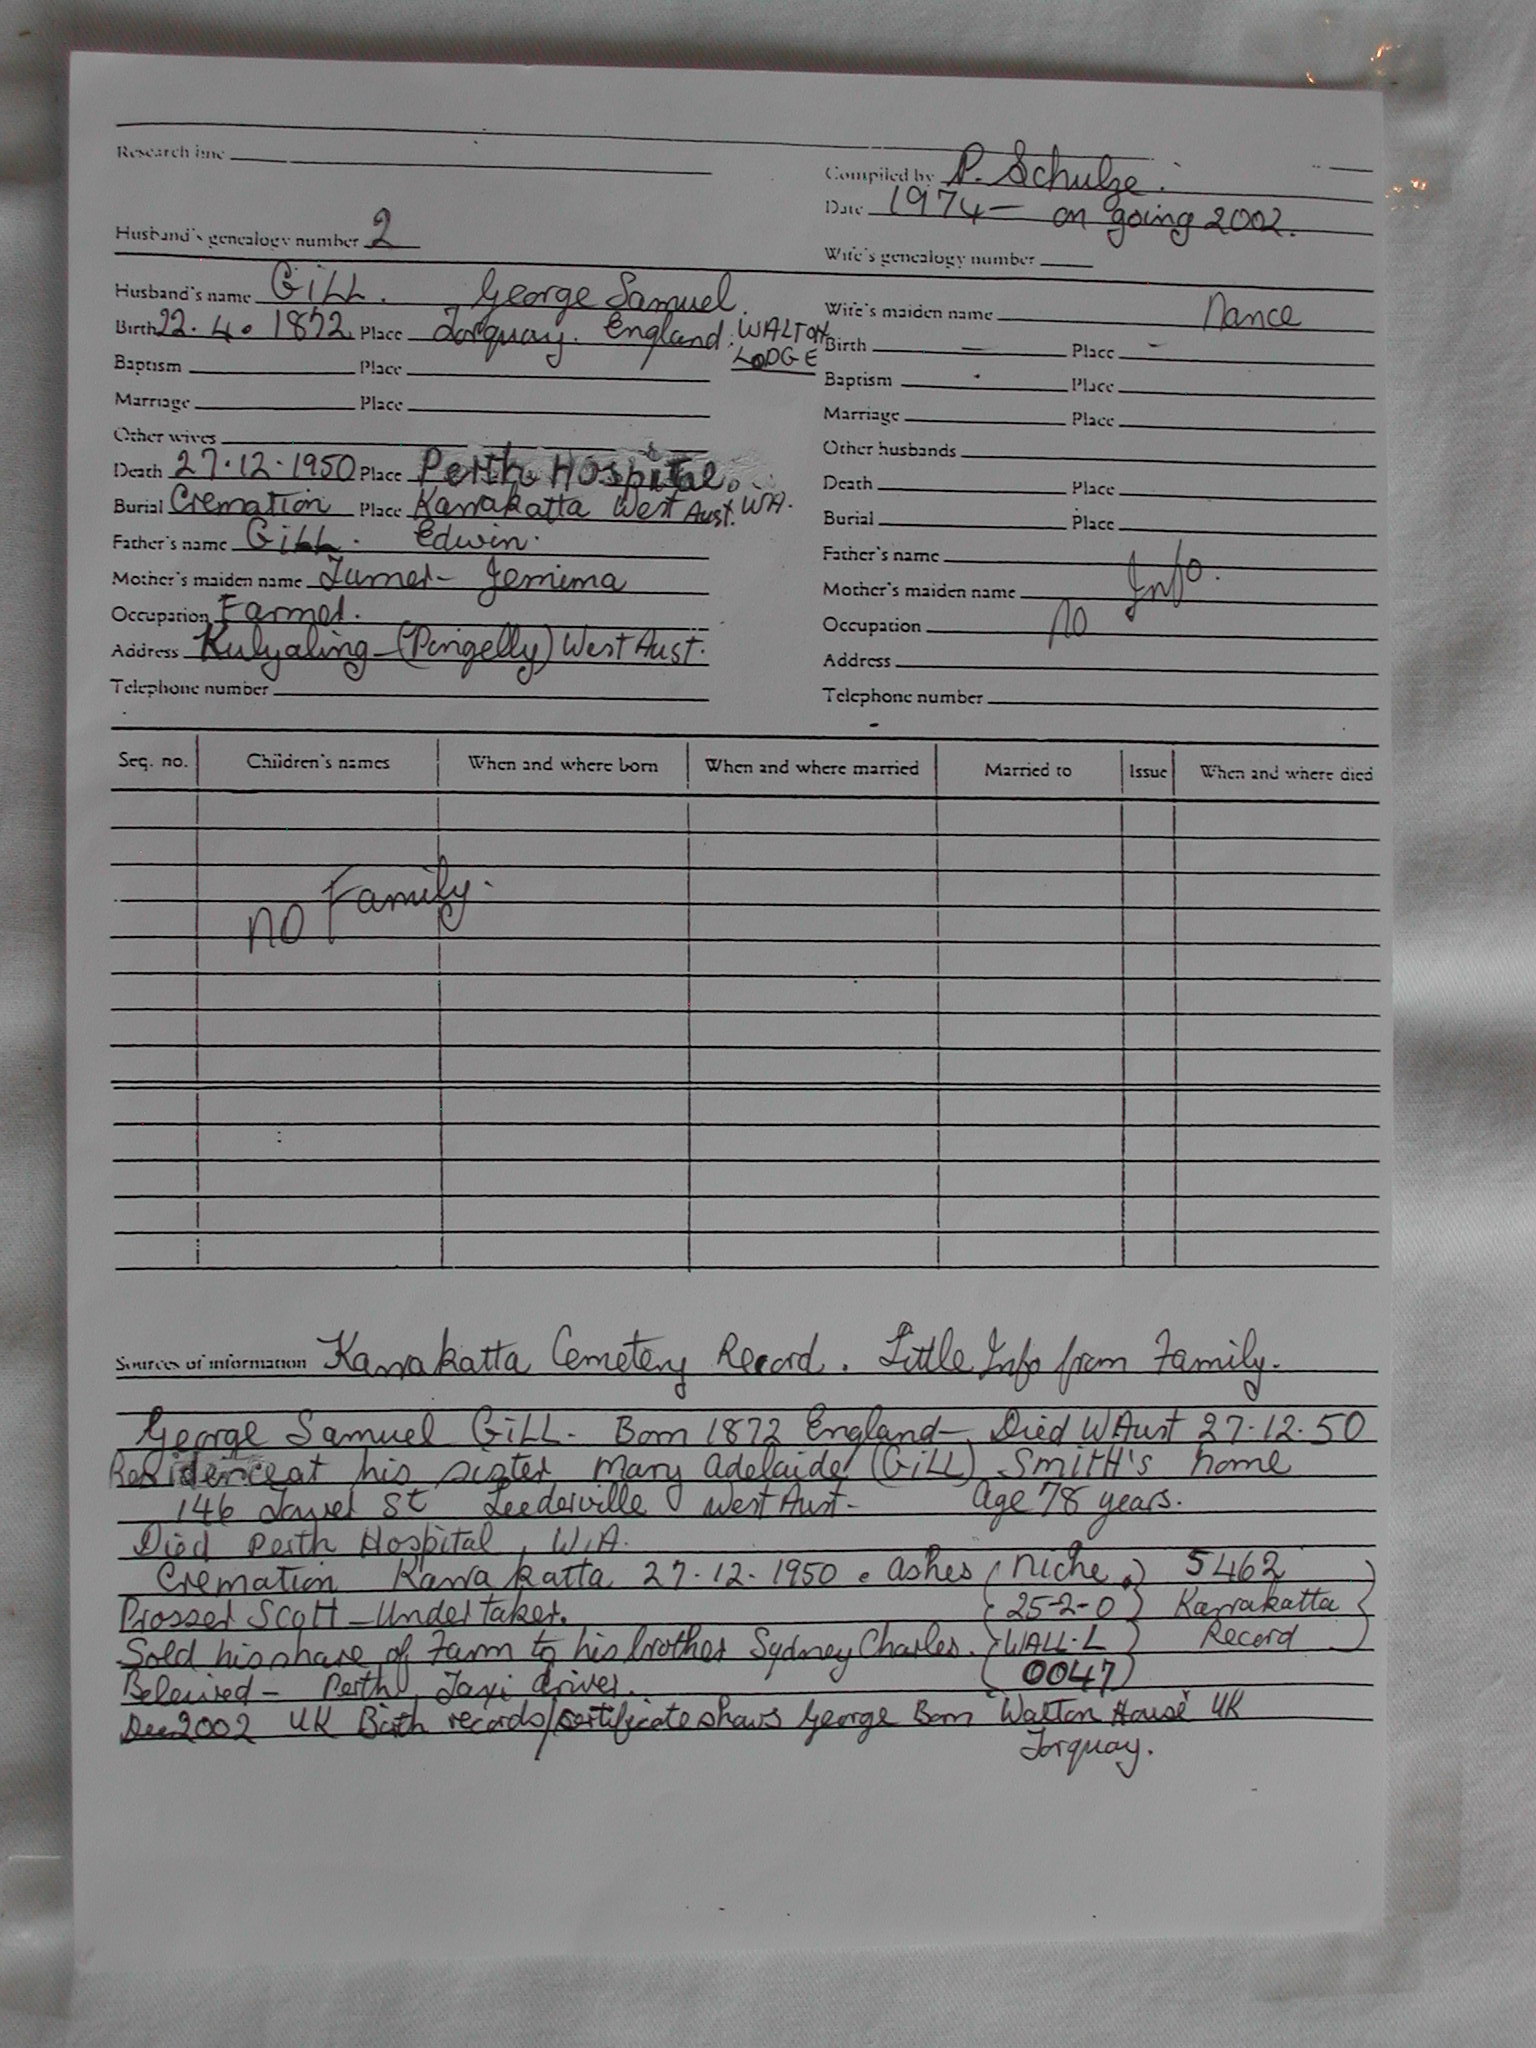 Research line
Compiled by P. Schulze.
Date 1974 — on going 2002.
Husband's genealogy number 2
Wife's genealogy number
Husband's name GiLL. George Samuel.
Birth 22.4.1872 Place Torquay. England. WALTON LODGE
Baptism Place
Marriage Place
Other wives
Death 27.12.1950 Place Perth Hospital.
Burial Cremation Place Karrakatta West Aust. WA.
Father's name GiLL. Edwin.
Mother's maiden name Turner - Jemima
Occupation Farmer.
Address Kulyaling - (Pingelly) West Aust.
Telephone number
Wife's maiden name Nance
Birth — Place -
Baptism Place
Marriage Place
Other husbands
Death Place
Burial Place
Father's name
Mother's maiden name
Occupation no Info.
Address
Telephone number
Seq. no. Children's names When and where born When and where married Married to Issue When and where died
no Family.
Sources of information Karrakatta Cemetery Record. Little Info from Family.
George Samuel GiLL - Born 1872 England - Died W Aust 27.12.50
Residence at his sister Mary Adelaide (GiLL) SmitH's home
146 St Leederville West Aust - age 78 years.
Died Perth Hospital, W.A.
Cremation Karrakatta 27.12.1950. ashes (niche.) 5462
Prosser Scott - Undertaker. (25-2-0) Karrakatta
Sold his share of Farm to his brother Sydney Charles. (WALL.L) Record
Beleived - Perth Taxi driver. (0047)
Dec 2002 UK Birth records/certificate shows George Born "Walton House" UK
Torquay.